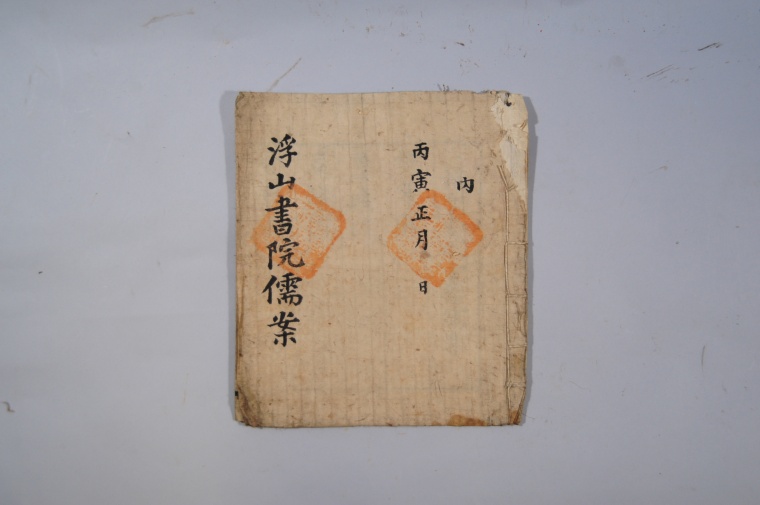 內
丙寅正月 日
浮山書院儒案